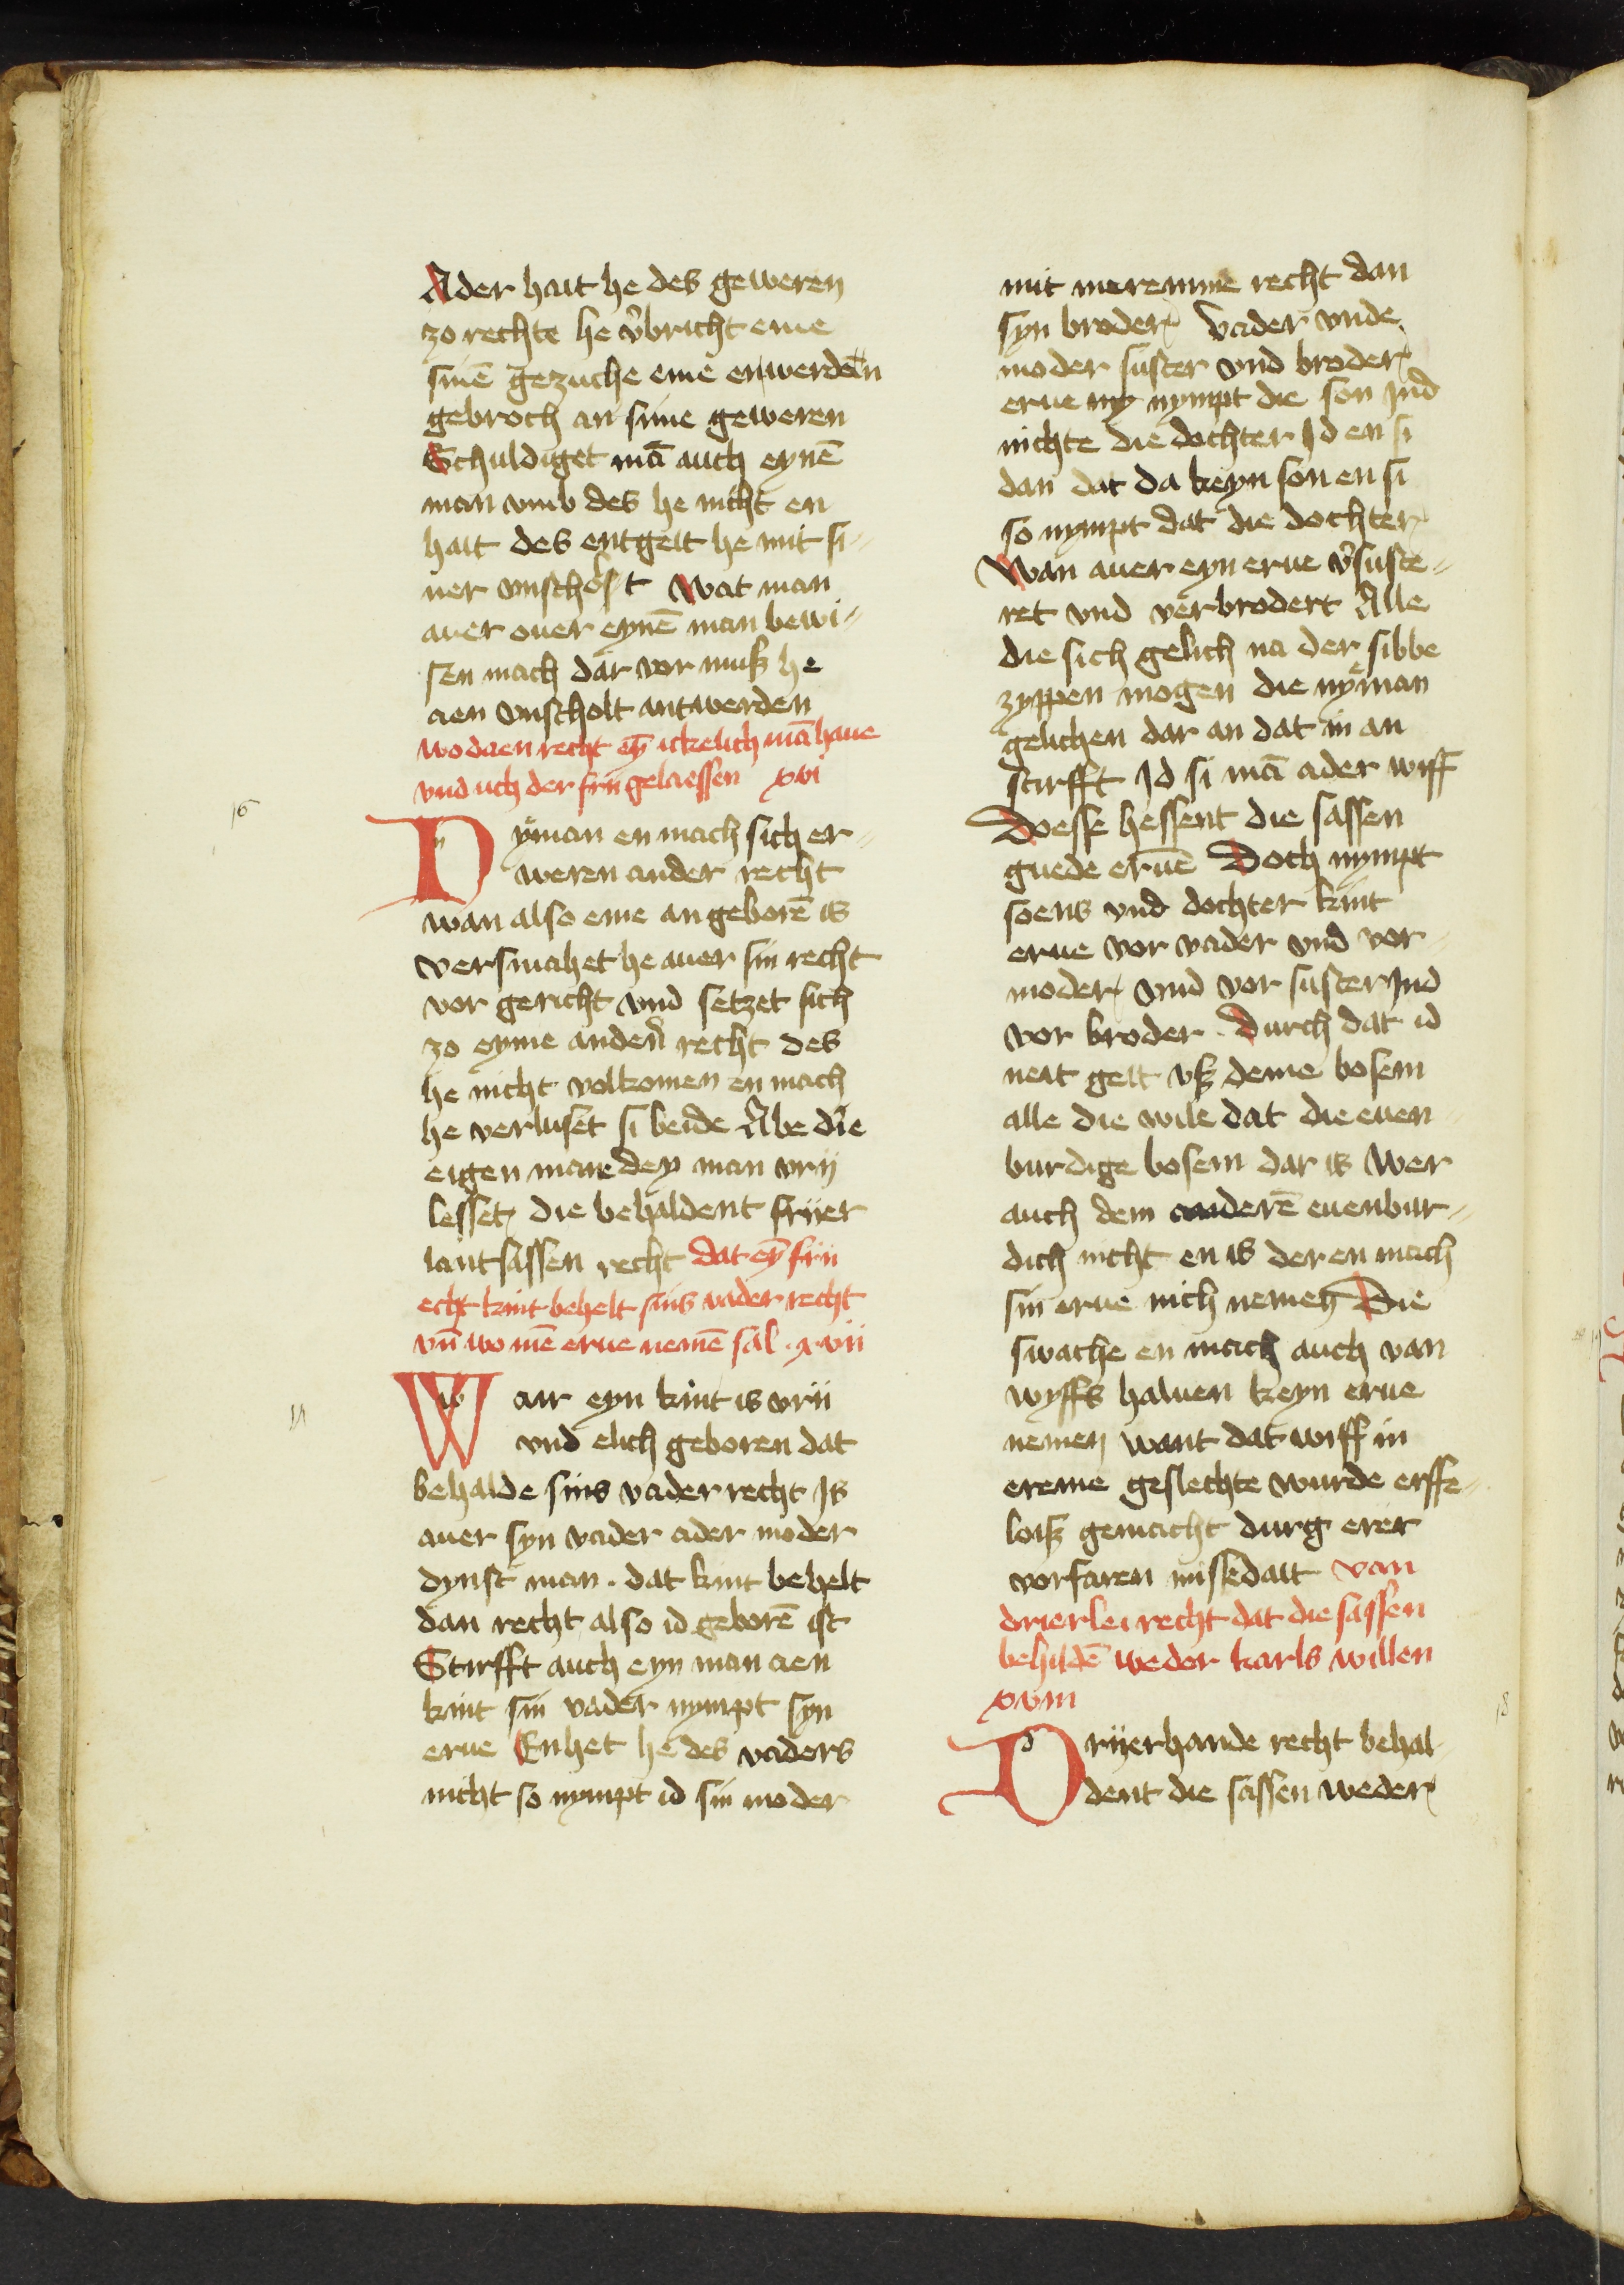 Ader hait he des geweren
zo rechte he v̉bricht eme
sinē gezuche eme enwerdēn
gebroch an sime geweren
Schuldiget mā auch eynē
man vmb des he nicht en
hait des entgelt he mit si-
ner vnscholt Wat man
auer ouer eynē man bewi-
sen mach dar vor musz he
aen vnscholt antwerden
wo daen recht eȳ ickelich mā haue
vnd uch der frii gelaessen xvi
16
Nyman en mach sich er-
weren ander recht
wan also eme an geborē is
versmahet he auer sin recht
vor gericht vnd setzet sich
zo eyme anderē recht des
he nicht volkomen en mach
he verluset si beide Abe die
eigen mare dey man vrij
lesset die behaldent frijer
lantsassen recht dat eȳ frii
echt kint behelt sins vader recht
vn̄ wo mē erue nemē sal . xvii
17
Wair eyn kint is vrii
vnd elich geboren dat
behalde sins vader recht Is
auer syn vader ader moder
dynst man . dat kint behelt
dan recht also id geborē ist
Stirfft auch eyn man aen
kint sin vader nympt syn
erue Enhet he des vaders
nicht so nympt id sin moder
mit mereme recht dan
syn broder Vader vnde
moder suster vnd broder
erue ny nympt die son Ind
nichte die dochter Id en si
dan dat da keyn son en si
so nympt dat die dochter
Wan auer eyn erue v̉suste-
ret vnd verbrodert Alle
die sich gelich na der sibbe
zyppen mogen die nyman
gelichen dar an dat in an
stirfft Id si mā ader wiff
Desse hessent die sassen
guede eruē Doch nympt
soens vnd dochter kint
erue vor vader vnd vor-
moder vnd vor suster Ind
vor broder . Durch dat id
neit gelt vsz deme bosem
alle die wile dat die euen
burdige bosem dar is Wer
auch dem anderē euenbur-
dich nicht en is der en mach
sin erue nich nemen Die
swache en mach auch van
wyffs haluen keyn erue
nemen want dat wiff in
ereme geslechte wurde erffe-
loisz gemacht durg erer
vorfaren missedait van
drierlei recht dat die sassen
behildē weder karls willen
xviii
18
Drijerhande recht behal-
dent die sassen weder